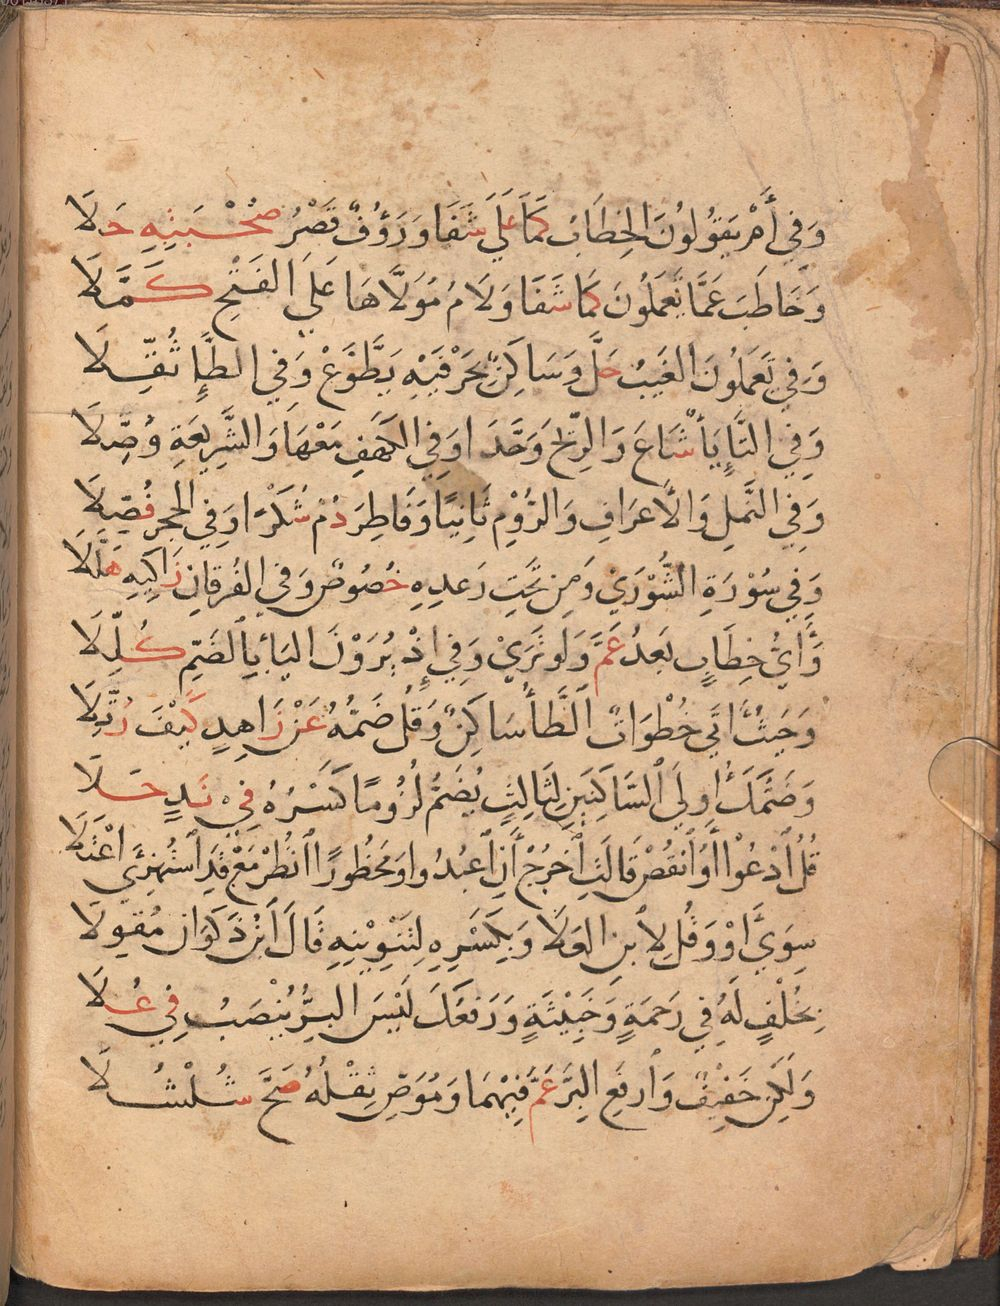 وَفِي أَمْ يَقُولُونَ الْخِطَابُ كَمَا عَلَى شَفَا وَرَؤُفٌ قَصْرُ صُحْبَتِهِ حَلَا
وَخَاطَبَ عَمَّا يَعْمَلُونَ كَمَا شَفَا وَلَامُ مُوَلَّاهَا عَلَى الْفَتْحِ كَمَّلَا
وَفِي تَعْمَلُونَ الْغَيْبُ حَلَّ وَسَاكِنٌ بِحَرْفَيْهِ يَطَّوَّعْ وَفِي الطَّاءِ ثُقِّلَا
وَفِي التَّاءِ يَاءٌ شَاعَ وَالرِّيْحَ وَحَّدَا وَفِي الْكَهْفِ مَعْهَا وَالشَّرِيعَةِ وُصِّلَا
وَفِي النَّمْلِ وَالْأَعْرَافِ وَالرُّوْمِ ثَانِيًا وَفَاطِرَ دُمْ شُكْرًا وَفِي الْحِجْرِ فُصِّلَا
وَفِي سُوْرَةِ الشُّوْرَيْ وَمِنْ تَحْتِ رَعْدِهِ خُصُوصٌ وَفِي الْفُرْقَانِ زَاكِيهِ هَلَّلَا
وَأَيُّ خِطَابٍ بَعْدُ عَمَّ وَلَوْ تَرَيْ وَفِي إِذْ يُرَوْنَ الْيَاءُ بِالضَّمِّ كُلِّلَا
وَحَيْثُ أَتَى خُطْوَاتٌ الطَّاءُ سَاكِنٌ وَقُلْ ضَمُّهُ عَنْ زَاهِدٍ كَيْفَ رَتَّلَا
وَضَمُّكَ أُولَى السَّاكِنَيْنِ لِثَالِثٍ يُضَمُّ لُزُومًا كَسْرُهُ فِي نَدٍ حَلَا
قُلُ ادْعُوْا أَوُ انْقُصْ قَالَتِ اخْرُجْ أَنِ اعْبُدُوا وَمَحْظُورًا انْظُرْ مَعْ قَدِ اسْتُهْزِئَ اعْتَلَا
سِوَى أَوْ وَقُلْ لِابْنِ الْعَلَا وَبِكَسْرِهِ لِتَنْوِيْنِهِ قَالَ ابْنُ ذَكْوَانَ مُقْوِلَا
بِخُلْفٍ لَهُ فِي رَحْمَةٍ وَخَبِيْثَةٍ وَرَفْعُكَ لَيْسَ الْبِرُّ يُنْصَبُ فِي عُلَا
وَلَكِنْ خَفِيْفٌ وَارْفَعِ الْبِرَّ عَمَّ فِيْهِمَا وَمُوَصٍّ ثِقْلُهُ صَحَّ شُلْشُلَا